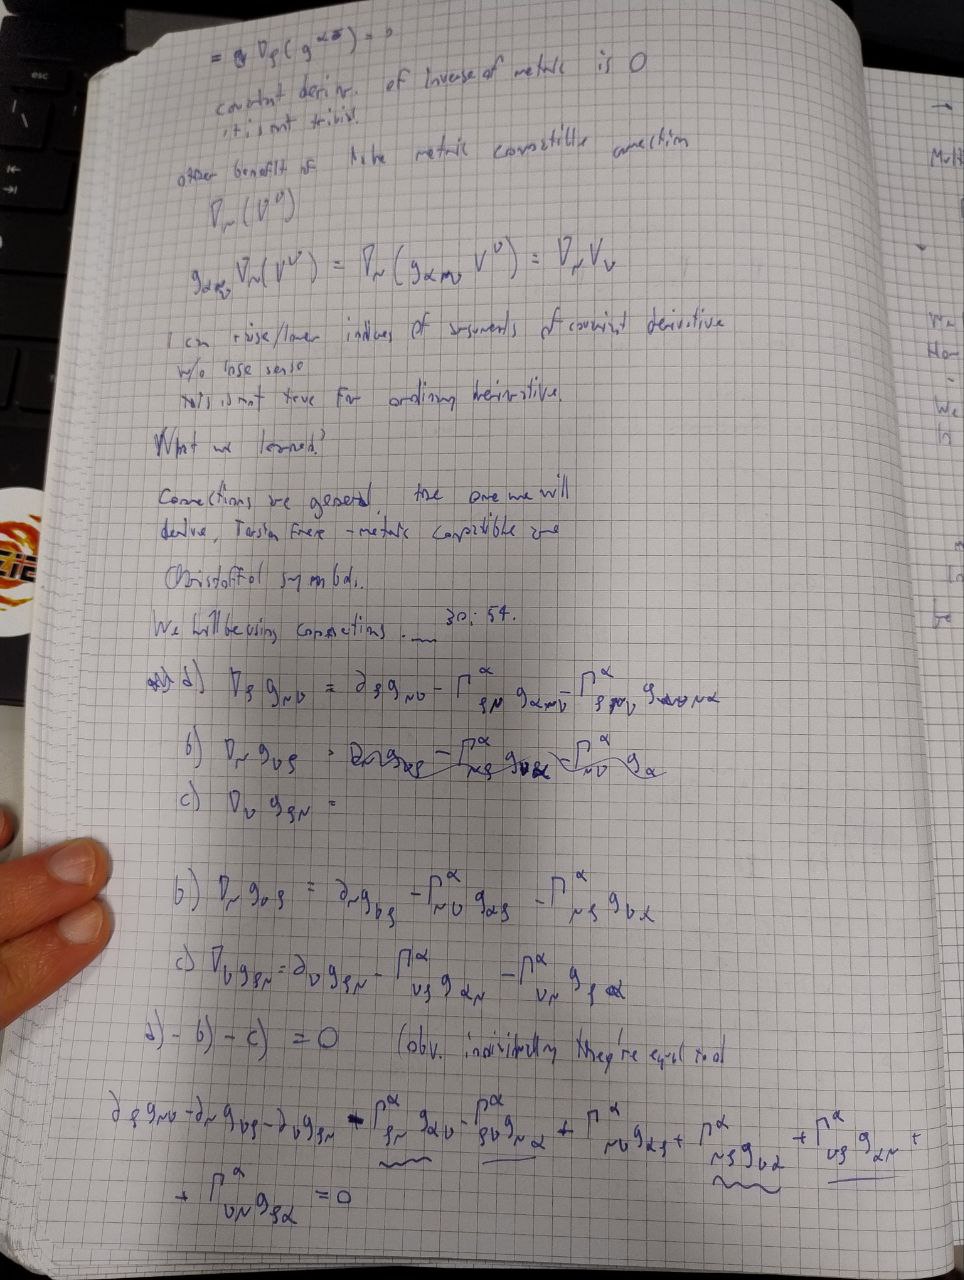 = g ∇ρ(g^{ασ}) = 0
covariant deriv. of inverse of metric is 0
it is not trivial.
other benefit of the metric compatible connection
∇μ(V^ν)
g_{αν} ∇μ(V^ν) = ∇μ(g_{αν} V^ν) = ∇μ V_ν
I can rise/lower indices of arguments of covariant derivative
w/o lose sense
this is not true for ordinary derivative.
What we learned?
Connections are general, the one we will
derive, Torsion Free - metric compatible are
Christoffel symbols.
We will be using connections. __ 30:54.
a) ∇ρ g_{μν} = ∂ρ g_{μν} - Γ^α_{ρμ} g_{αν} - Γ^α_{ρν} g_{μα}
b) ∇μ g_{νρ} =
c) ∇ν g_{ρμ} =
b) ∇μ g_{νρ} = ∂μ g_{νρ} - Γ^α_{μν} g_{αρ} - Γ^α_{μρ} g_{να}
c) ∇ν g_{ρμ} = ∂ν g_{ρμ} - Γ^α_{νρ} g_{αμ} - Γ^α_{νμ} g_{ρα}
a) - b) - c) = 0 (obv. individually they're equal to 0
∂ρ g_{μν} - ∂μ g_{νρ} - ∂ν g_{ρμ} - Γ^α_{ρμ} g_{αν} - Γ^α_{ρν} g_{μα} + Γ^α_{μν} g_{αρ} + Γ^α_{μρ} g_{να} + Γ^α_{νρ} g_{αμ} +
+ Γ^α_{νμ} g_{ρα} = 0
esc